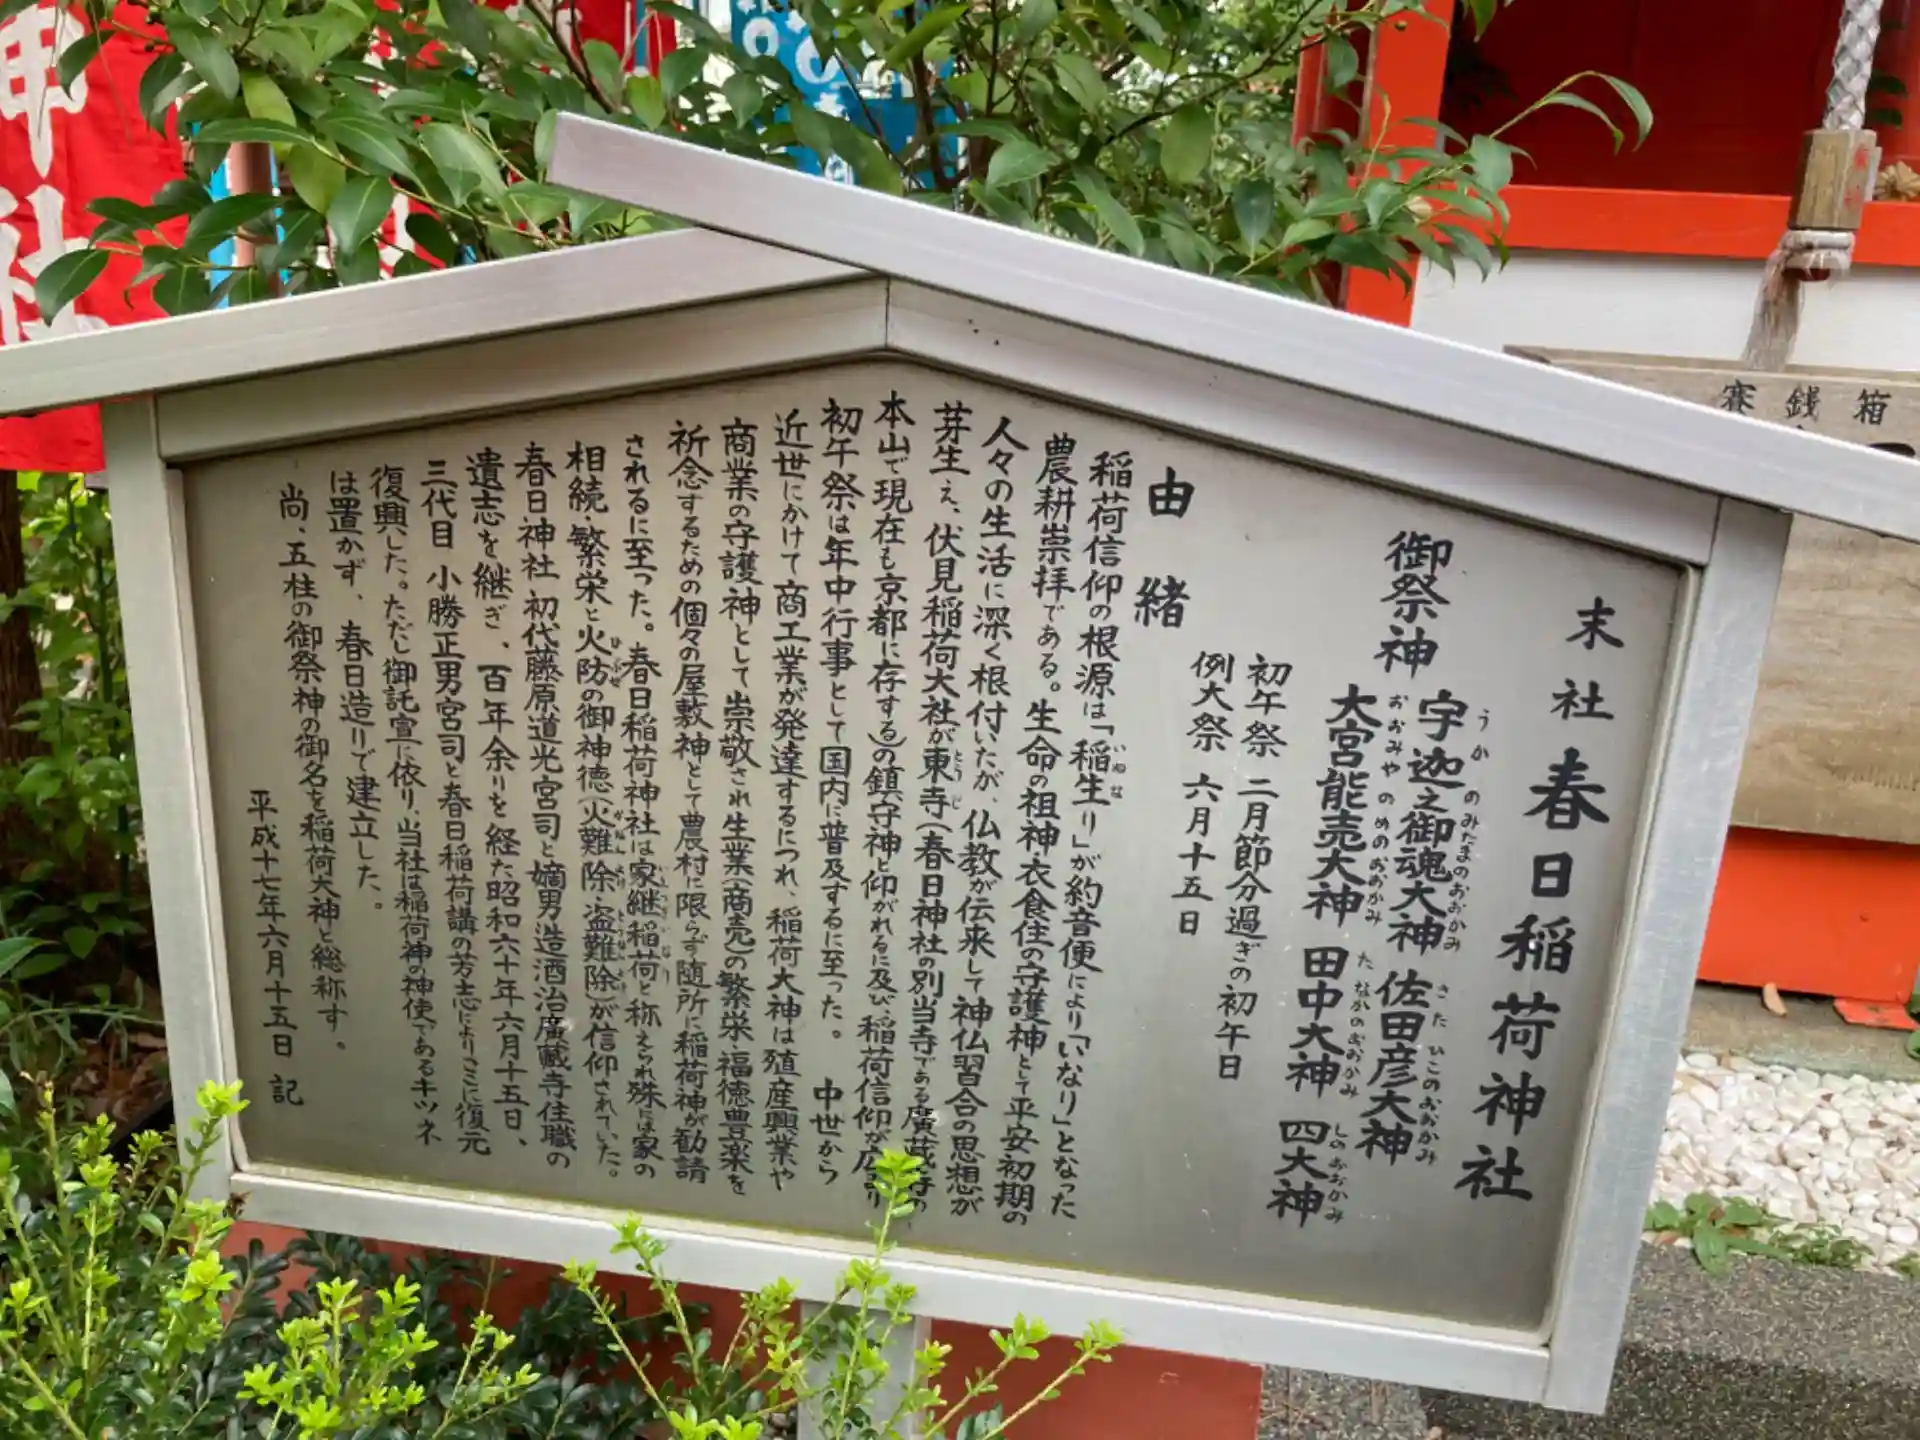 末社 春日稲荷神社
御祭神
宇迦之御魂大神 佐田彦大神
うか のみたまのおおかみ さた ひこのおおかみ
大宮能売大神 田中大神 四大神
おおみや のめのおおかみ たなかのおおかみ しのおおかみ
初午祭 二月節分過ぎの初午日
例大祭 六月十五日
由緒
稲荷信仰の根源は「稲生り」が約音便により「いなり」となった
いね な
農耕崇拝である。生命の祖神・衣食住の守護神として平安初期の
人々の生活に深く根付いたが、仏教が伝来して神仏習合の思想が
芽生え、伏見稲荷大社が東寺(春日神社の別当寺である廣蔵寺の
とうじ
本山で現在も京都に存する)の鎮守神と仰がれるに及び、稲荷信仰が広まり
初午祭は年中行事として国内に普及するに至った。 中世から
近世にかけて商工業が発達するにつれ、稲荷大神は殖産興業や
商業の守護神として崇敬され生業(商売)の繁栄・福徳豊楽を
祈念するための個々の屋敷神として農村に限らず随所に稲荷神が勧請
されるに至った。春日稲荷神社は家継稲荷と称えられ殊には家の
相続・繁栄と火防の御神徳(火難除・盗難除)が信仰されていた。
ひぶせ
春日神社 初代藤原道光宮司と嫡男造酒治廣蔵寺住職の
遺志を継ぎ、百年余りを経た昭和六十年六月十五日、
三代目 小勝正男宮司と春日稲荷講の芳志によりここに復元
復興した。ただし御託宣に依り、当社は稲荷神の神使であるキツネ
は置かず、春日造りで建立した。
尚、五柱の御祭神の御名を稲荷大神と総称す。
平成十七年六月十五日 記
賽銭箱
神社